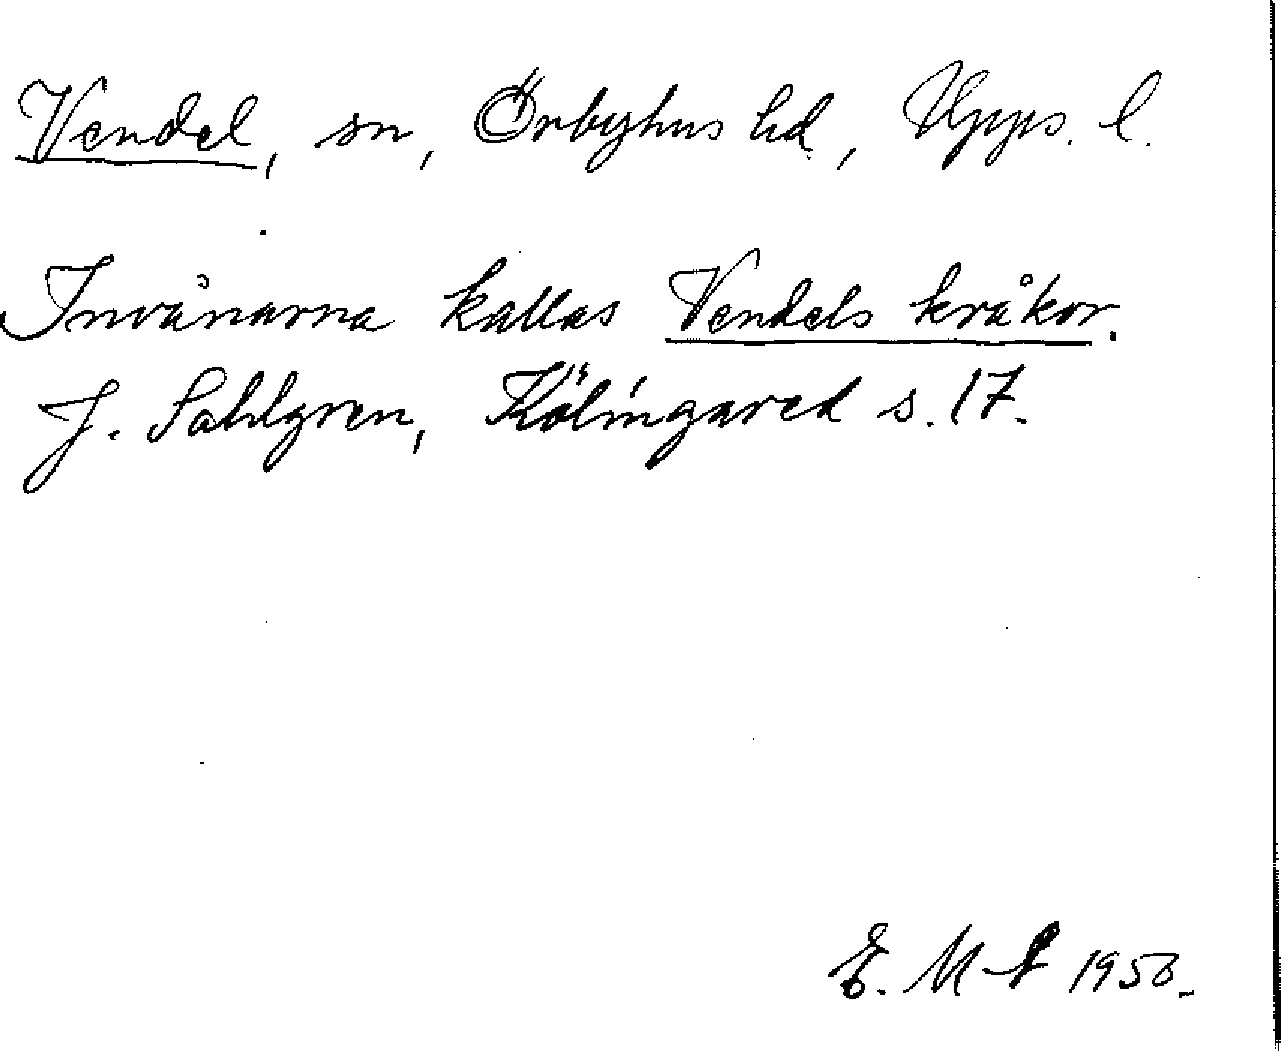 Vendel, sn, Örbyhus hd, Upps. l.
Invånarna kallas Vendels kråkor.
J. Sahlgren, Kölingared s. 17.
E. M-f 1958.